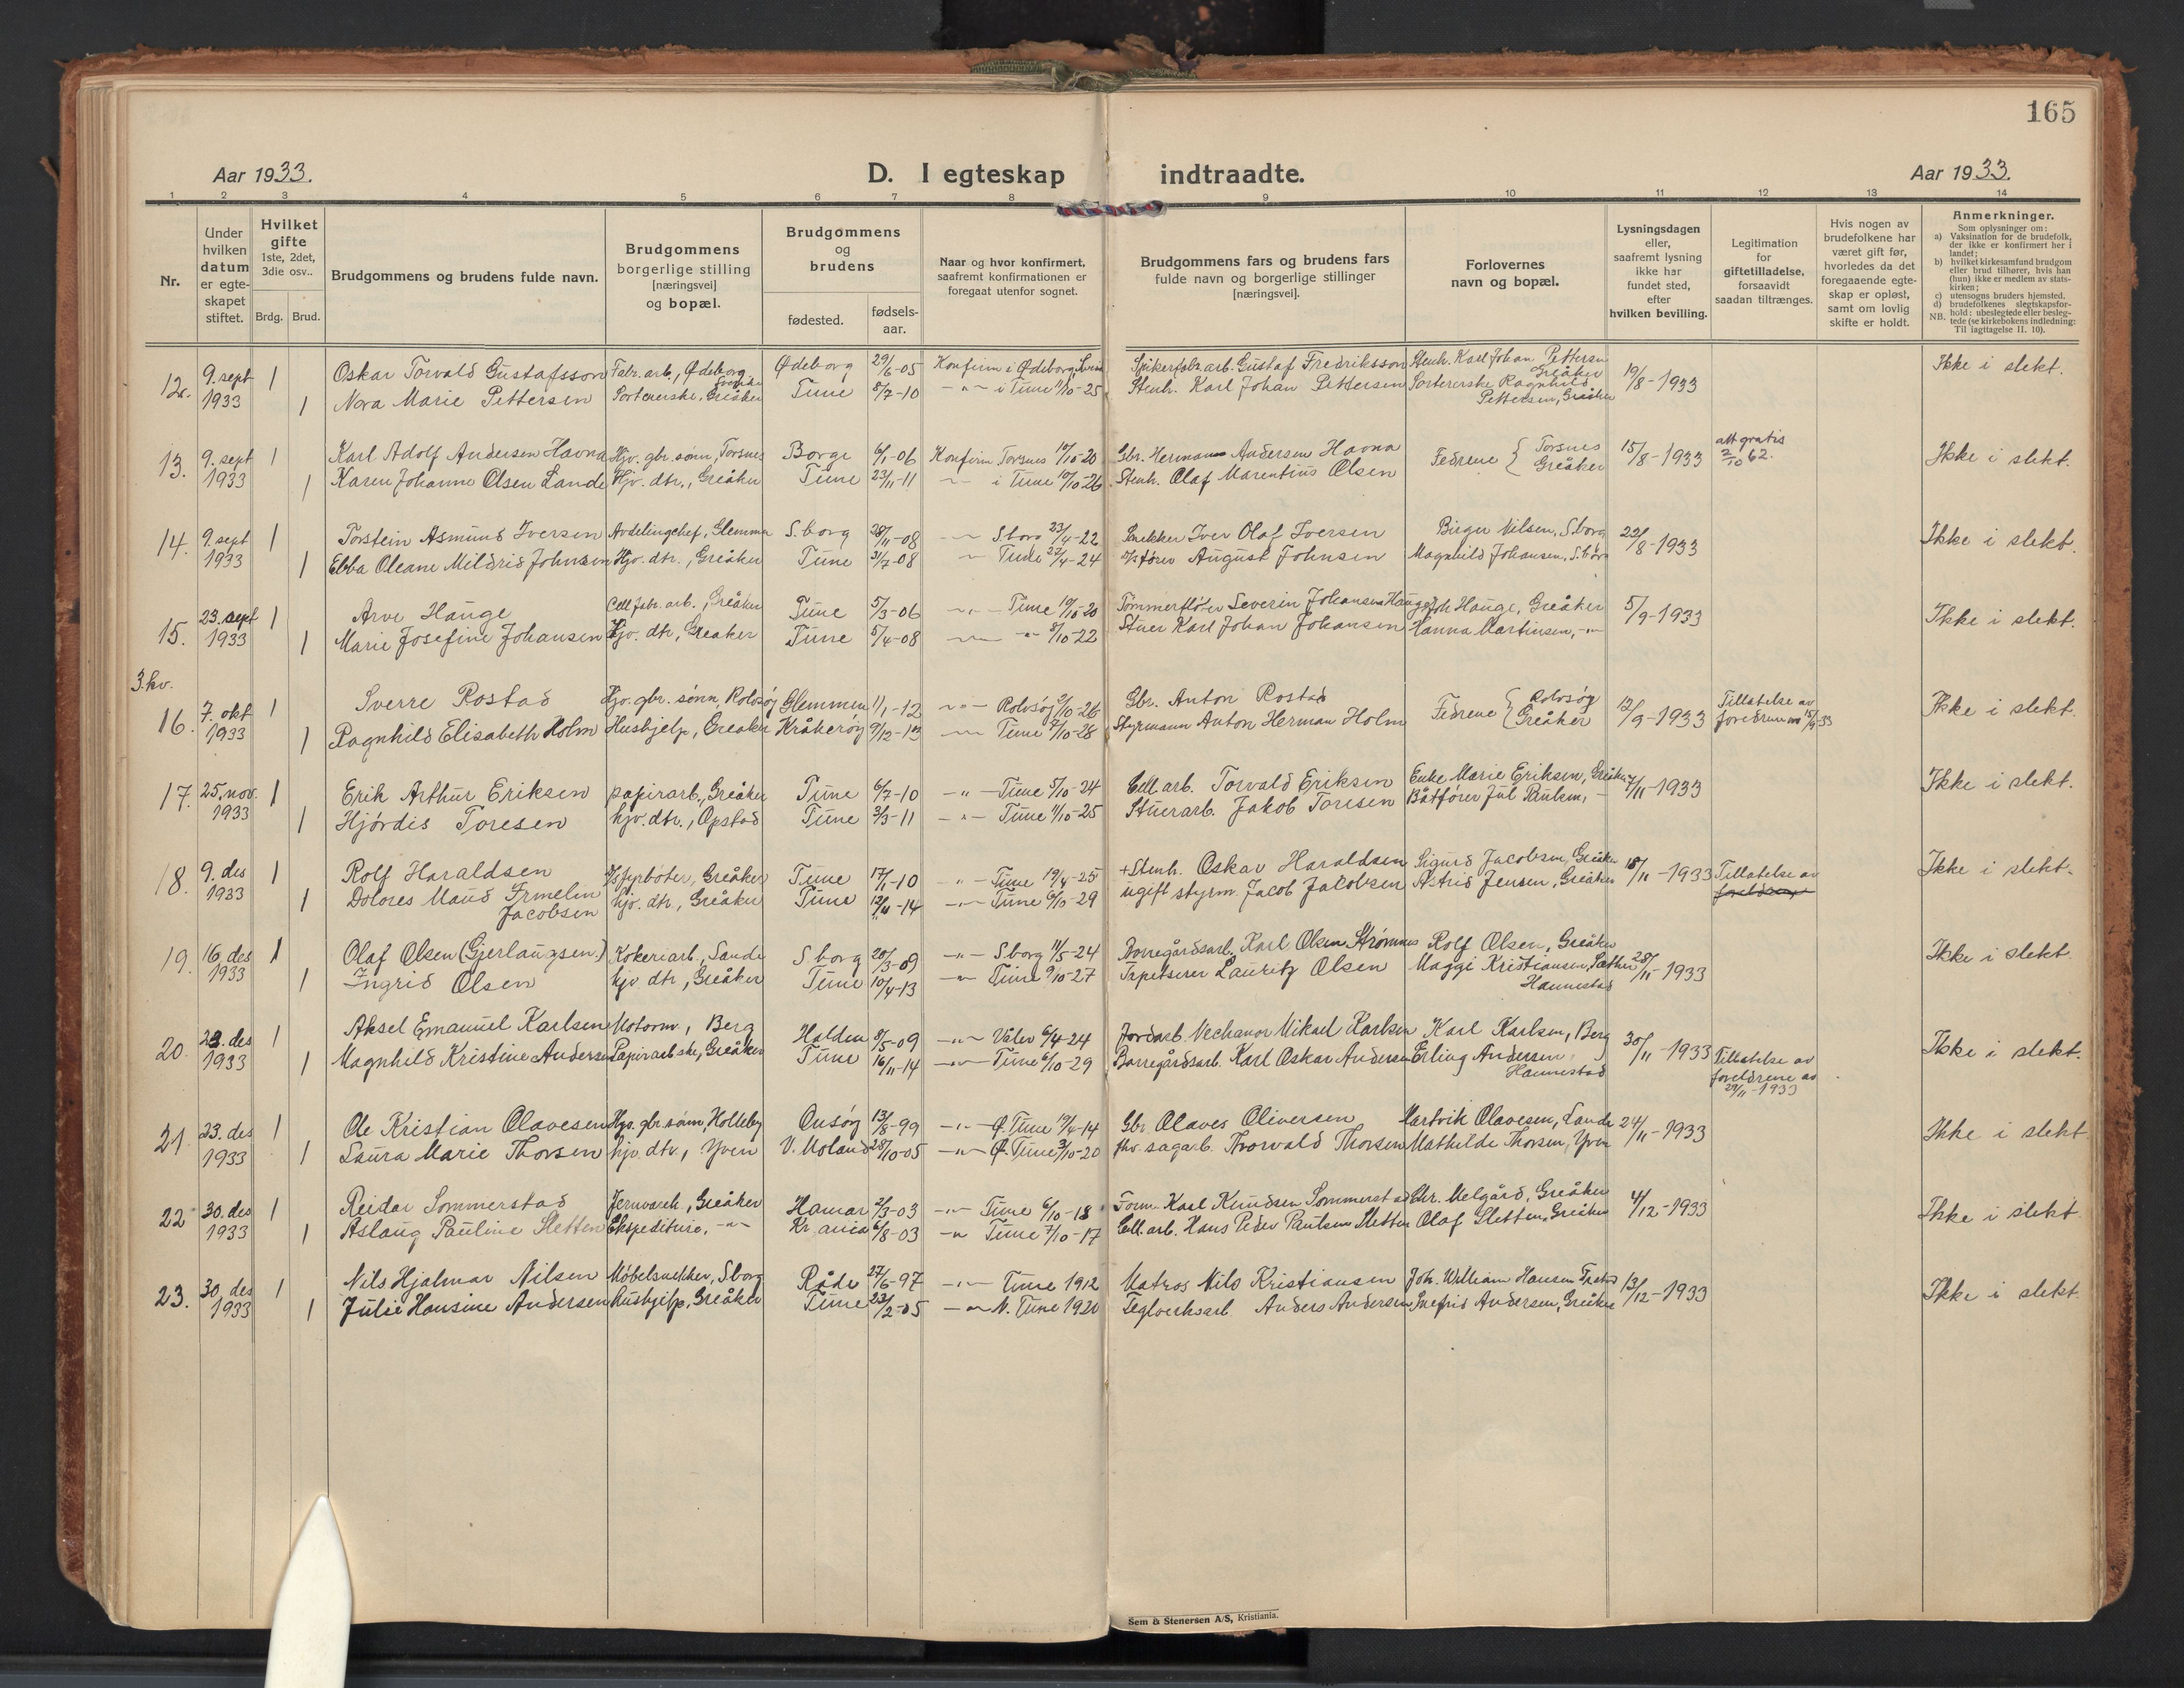 165
Aar 1933.
D. I egteskap indtraadte.
Aar 1933.
1 2 3 4 5 6 7 8 9 10 11 12 13 14
Nr.
Under hvilken datum er egteskapet stiftet.
Hvilket gifte 1ste, 2det, 3die osv..
Brdg. Brud.
Brudgommens og brudens fulde navn.
Brudgommens borgerlige stilling [næringsvei] og bopæl.
Brudgommens og brudens
fødested.
fødselsaar.
Naar og hvor konfirmert, saafremt konfirmationen er foregaat utenfor sognet.
Brudgommens fars og brudens fars fulde navn og borgerlige stillinger [næringsvei].
Forlovernes navn og bopæl.
Lysningsdagen eller, saafremt lysning ikke har fundet sted, efter hvilken bevilling.
Legitimation for giftetilladelse, forsaavidt saadan tiltrænges.
Hvis nogen av brudefolkene har været gift før, hvorledes da det foregaaende egteskap er opløst, samt om lovlig skifte er holdt.
Anmerkninger.
Som oplysninger om:
a) Vaksination for de brudefolk, der ikke er konfirmert her i landet;
b) hvilket kirkesamfund brudgom eller brud tilhører, hvis han (hun) ikke er medlem av statskirken;
c) utensogns bruders hjemsted.
d) brudefolkenes slegtskapsforhold: ubeslegtede eller beslegtede (se kirkebokens indledning: NB. Til iagttagelse II. 10).
12. 9. sept 1 Oskar Torvald Gustafsson Fabr. arb., Ødeborg Sverike Ødeborg 29/6-05 Konfirm i Ødeborg, Spikerfabr.arb. Gustaf Fredriksson Stenh. Karl Johan Pettersen Greåker 19/8-1933 Ikke i slekt.
1933 1 Nora Marie Pettersen Sortererske, Greåker Tune 8/7-10 -"- i Tune 11/10-25 Stenh. Karl Johan Pettersen Sortererske Ragnhild Pettersen, Greåker
13. 9. sept 1 Karl Adolf Andersen Havna Hjv. gbr. sønn, Torsnes Borge 6/1-06 Konfirm Torsnes 10/10-20 Gbr. Herman Andersen Havna Fedrene { Torsnes 15/8-1933 att gratis 2/10 62. Ikke i slekt.
1933 1 Karen Johanne Olsen Lande Hjv. dtr., Greåker Tune 23/11-11 -"- i Tune 10/10-26 Stenh. Olaf Marentius Olsen Greåker
14. 9. sept 1 Torstein Asmund Iversen Avdelingchef, Glemmen S.borg 28/11-08 -"- S.borg 23/4-22 Snekker Iver Olaf Iversen Birger Nilsen, S.borg 22/8-1933 Ikke i slekt.
1933 1 Ebba Oleane Mildrid Johnsen Hjv. dtr., Greåker Tune 31/7-08 -"- Tune 27/4-24 August Johnsen Magnhild Johansen, S.borg
15. 23. sept 1 Arve Hauge Cell.fabr. arb., Greåker Tune 5/3-06 -"- Tune 10/10-20 Tømmerfløter Severin Johansen Hauge Joh Hauge, Greåker 5/9-1933 Ikke i slekt.
1933 1 Marie Josefine Johansen Hjv. dtr, Greaker Tune 5/4-08 -"- -"- 8/10-22 Stuer Karl Johan Johansen Hanna Martinsen, -"-
3. kv.
16. 7. okt 1 Sverre Rostad Hjv. gbr. sønn, Rolvsøy Glemmen 11/1-12 -"- Rolvsøy 3/10-26 Gbr. Anton Rostad Fedrene { Rolvsøy 12/9-1933 Tillatelse av Ikke i slekt.
1933 1 Ragnhild Elisabeth Holm Hushjelp, Greaker Kråkerøy 9/12-13 -"- Tune 7/10-28 Styrmann Anton Herman Holm Greåker
17. 25. nov. 1 Erik Arthur Eriksen papirarb., Greåker Tune 6/7-10 -"- Tune 5/10-24 Cell. arb. Torvald Eriksen Enke Marie Eriksen, Greåker 7/11-1933 Ikke i slekt.
1933 1 Hjørdis Toresen hjv. dtr., Opstad Tune 2/3-11 -"- Tune 11/10-25 Stuerarb. Jakob Toresen Båtfører Jul Paulsen, -
18. 9. des 1 Rolf Haraldsen Greåker Tune 17/1-10 -"- Tune 19/4-25 + Stenh. Oskar Haraldsen Sigurd Jacobsen, Greåker 18/11-1933 Tillatelse av foreldrene Ikke i slekt.
1933 1 Dolores Maud Irmelin Jacobsen hjv. dtr, Greåker Tune 12/11-14 -"- Tune 6/10-29 ugift styrm. Jacob Jacobsen Astrid Jensen, Greåker
19. 16. des 1 Olaf Olsen (Gjerlaugsen) Kokeriarb., Sande S.borg 20/3-09 -"- S.borg 11/5-24 Borregårdsarb. Karl Olsen Strømnes Rolf Olsen, Greåker 28/11-1933 Ikke i slekt.
1933 1 Ingrid Olsen hjv. dtr., Greåker Tune 10/4-13 -"- Tune 9/10-27 Tapetserer Lauritz Olsen Maggi Kristiansen, Hannestad
20. 23. des 1 Aksel Emanuel Karlsen Motorm, Berg Halden 8/5-09 -"- Våler 6/4-24 Jordarb. Mikael Karlsen Karl Karlsen, Berg 30/11-1933 Ikke i slekt.
1933 1 Magnhild Kristine Andersen Papirarb.ske, Greåker Tune 16/11-14 -"- Tune 6/10-29 Borregårdsarb. Karl Oskar Andersen Erling Andersen, Hannestad Tillatelse av foreldrene av 29/11-1933
21. 23. des 1 Ole Kristian Olavesen Hjv. gbr sønn, Holleby Onsøy 13/8-99 -"- Ø. Tune 19/4-14 Gbr Olaves Oliversen Hartvik Olavesen, Lande 24/11-1933 Ikke i slekt
1933 1 Laura Marie Thorsen hjv. dtr, Yven V. Moland 28/10-05 -"- Ø. Tune 3/10-20 sagarb. Thorvald Thorsen Mathilde Thorsen, Yven
22 30. des 1 Reidar Sommerstad Jernvareh., Greåker Hamar 2/3-03 -"- Tune 6/10-18 Form. Karl Knudsen Sommerstad Chr. Melgård, Greåker 4/12-1933 Ikke i slekt
1933 1 Aslaug Pauline Sletten Ekspeditrise, -"- Kr.ania 6/8-03 -"- Tune 7/10-17 Cell. arb. Hans Peder Paulsen Sletten Olaf Sletten, Greåker
23. 30. des 1 Nils Hjalmar Nilsen Møbelsnekker, Sborg Råde 27/6-97 -"- Tune 1912 Matros Nils Kristiansen Joh. William Hansen 13/12-1933 Ikke i slekt.
1933 1 Julie Hansine Andersen Hushjelp, Greåker Tune 23/2-05 -"- N. Tune 1920 Teglverksarb. Anders Andersen Andersen, Greåker
Sem & Stenersen A/S, Kristiania.